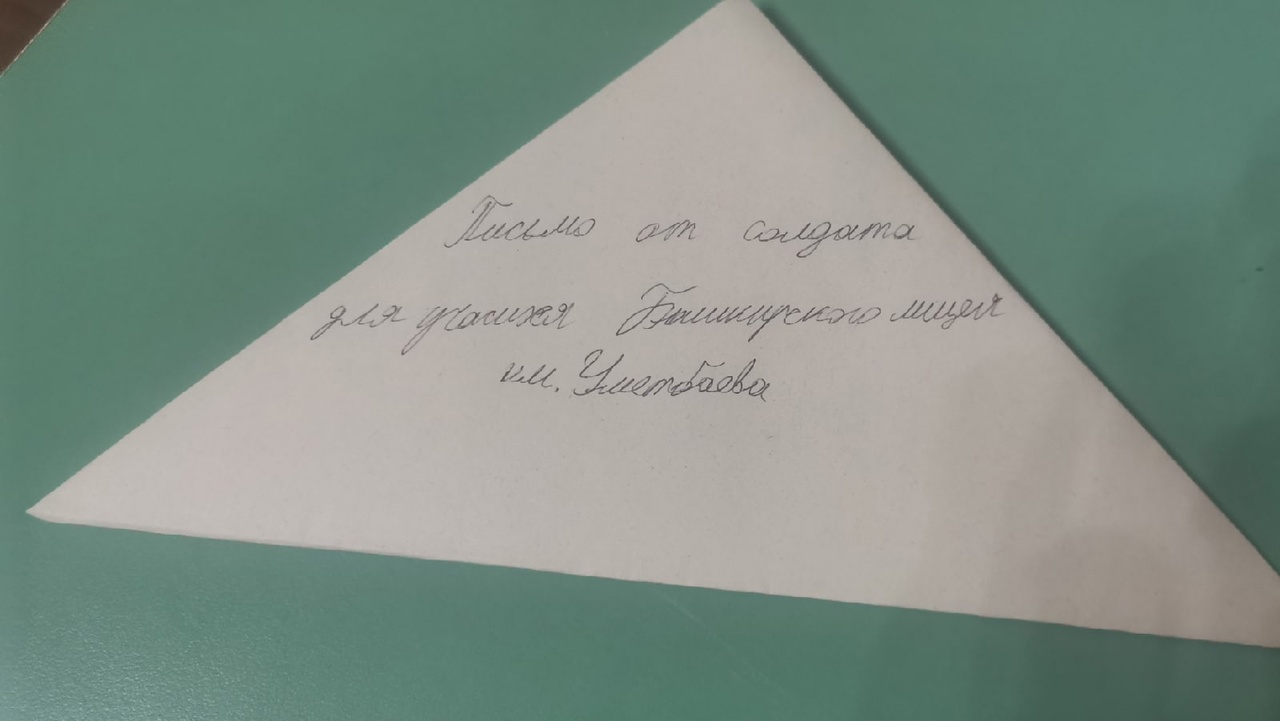 Письмо от солдата
для учасихся Башкирского лицея
им. Уметбаева